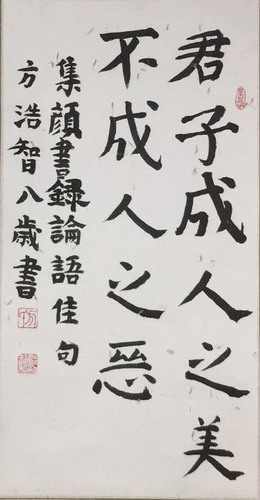 君子成人之美
不成人之惡
集顏書錄論語佳句
方浩智八歲書